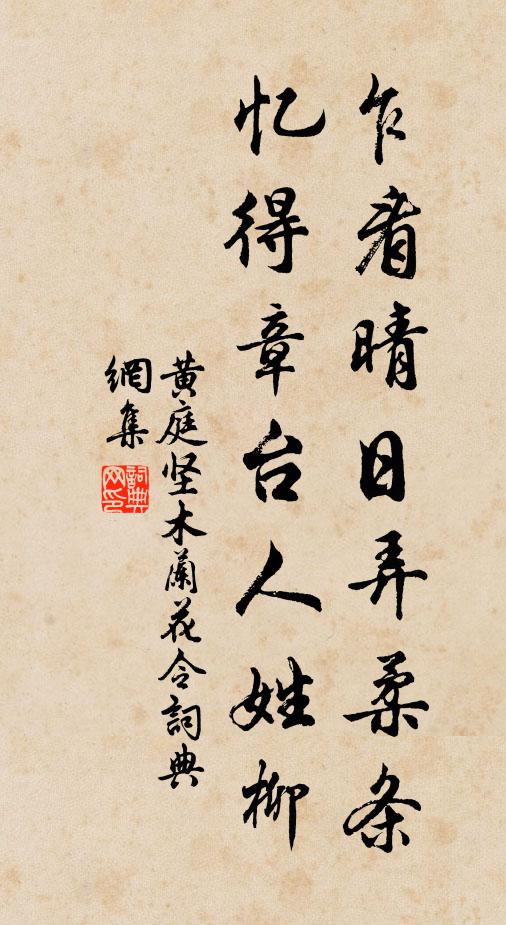 乍看晴日弄柔条
忆得章台人姓柳
黄庭坚木蘭花令詞典
網集
詞典
网印